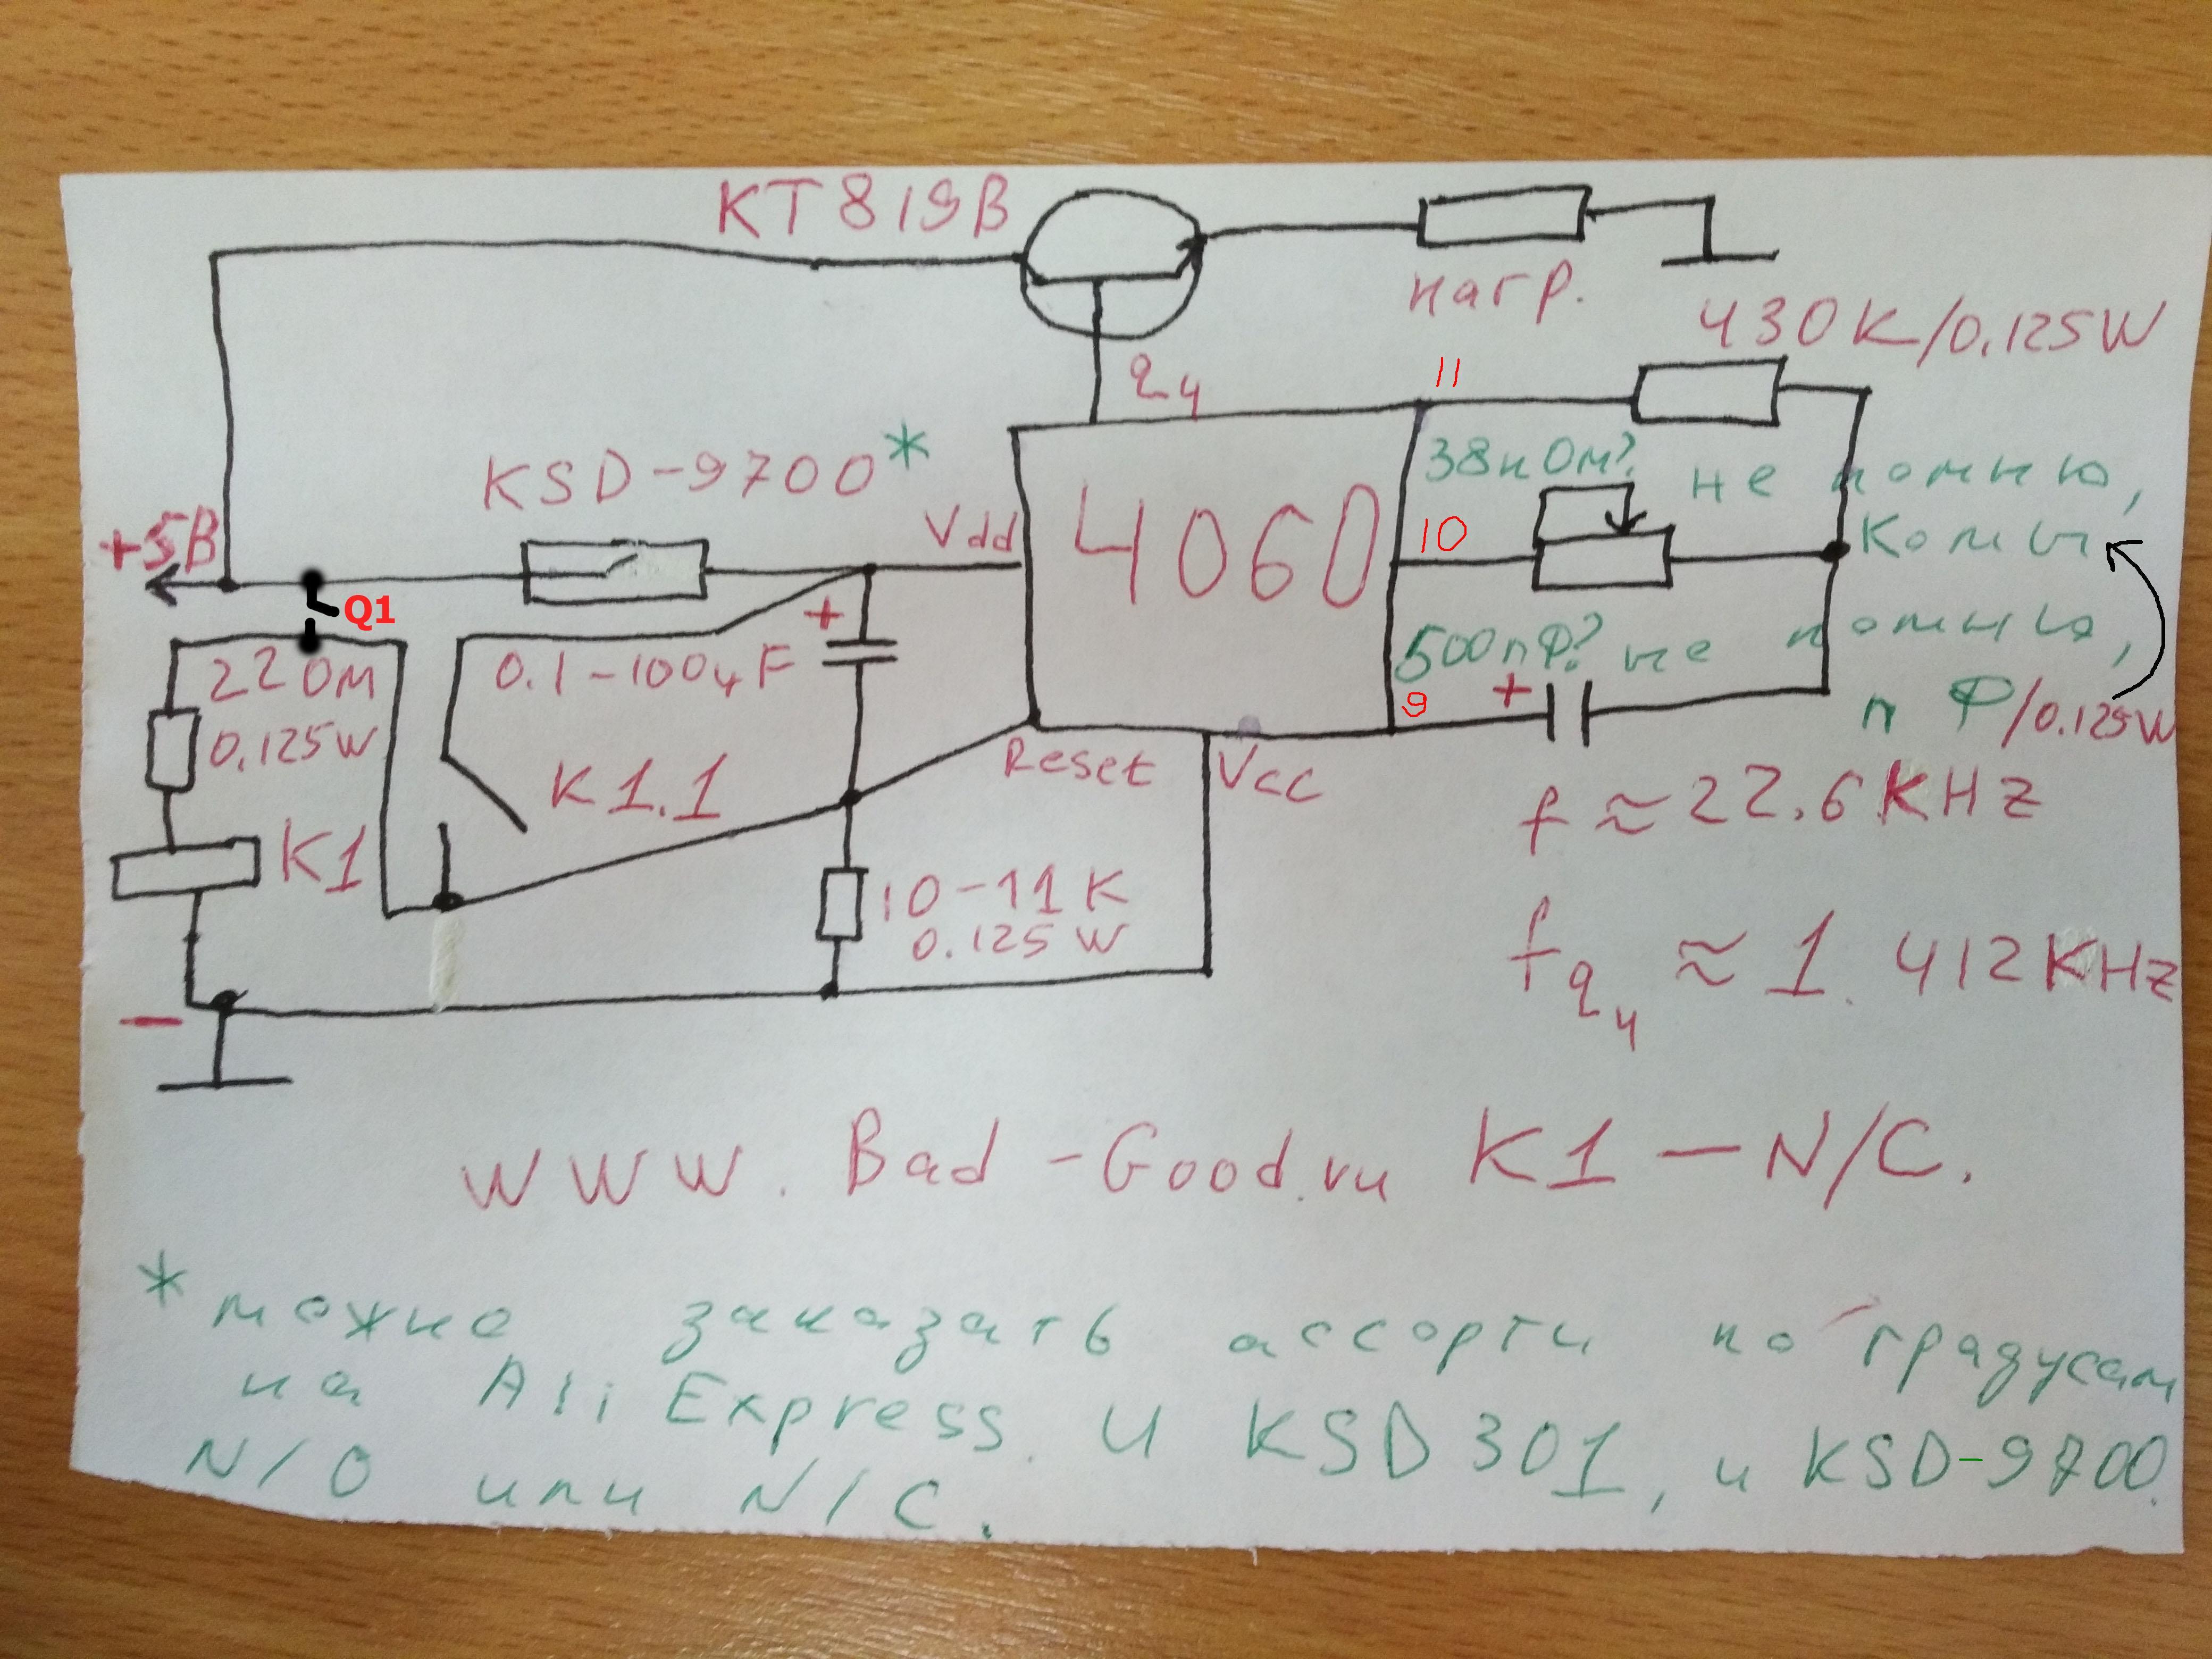 КТ819В
нагр.
430К/0.125W
q4
11
KSD-9700*
38кОм? не помню,
+5В
Vdd
4060
10
КОм
Q1
500пФ? не помню,
22Ом
0.1-100уF
+
+
9
пФ/0.125W
0.125W
Reset
Vcc
K1.1
f≈22.6KHZ
K1
10-11K
0.125W
fq4 ≈ 1.412KHz
-
www.Bad-Good.ru K1-N/C.
* можно заказать ассорти по градусам
на AliExpress. И KSD301, и KSD-9700.
N/O или N/C.